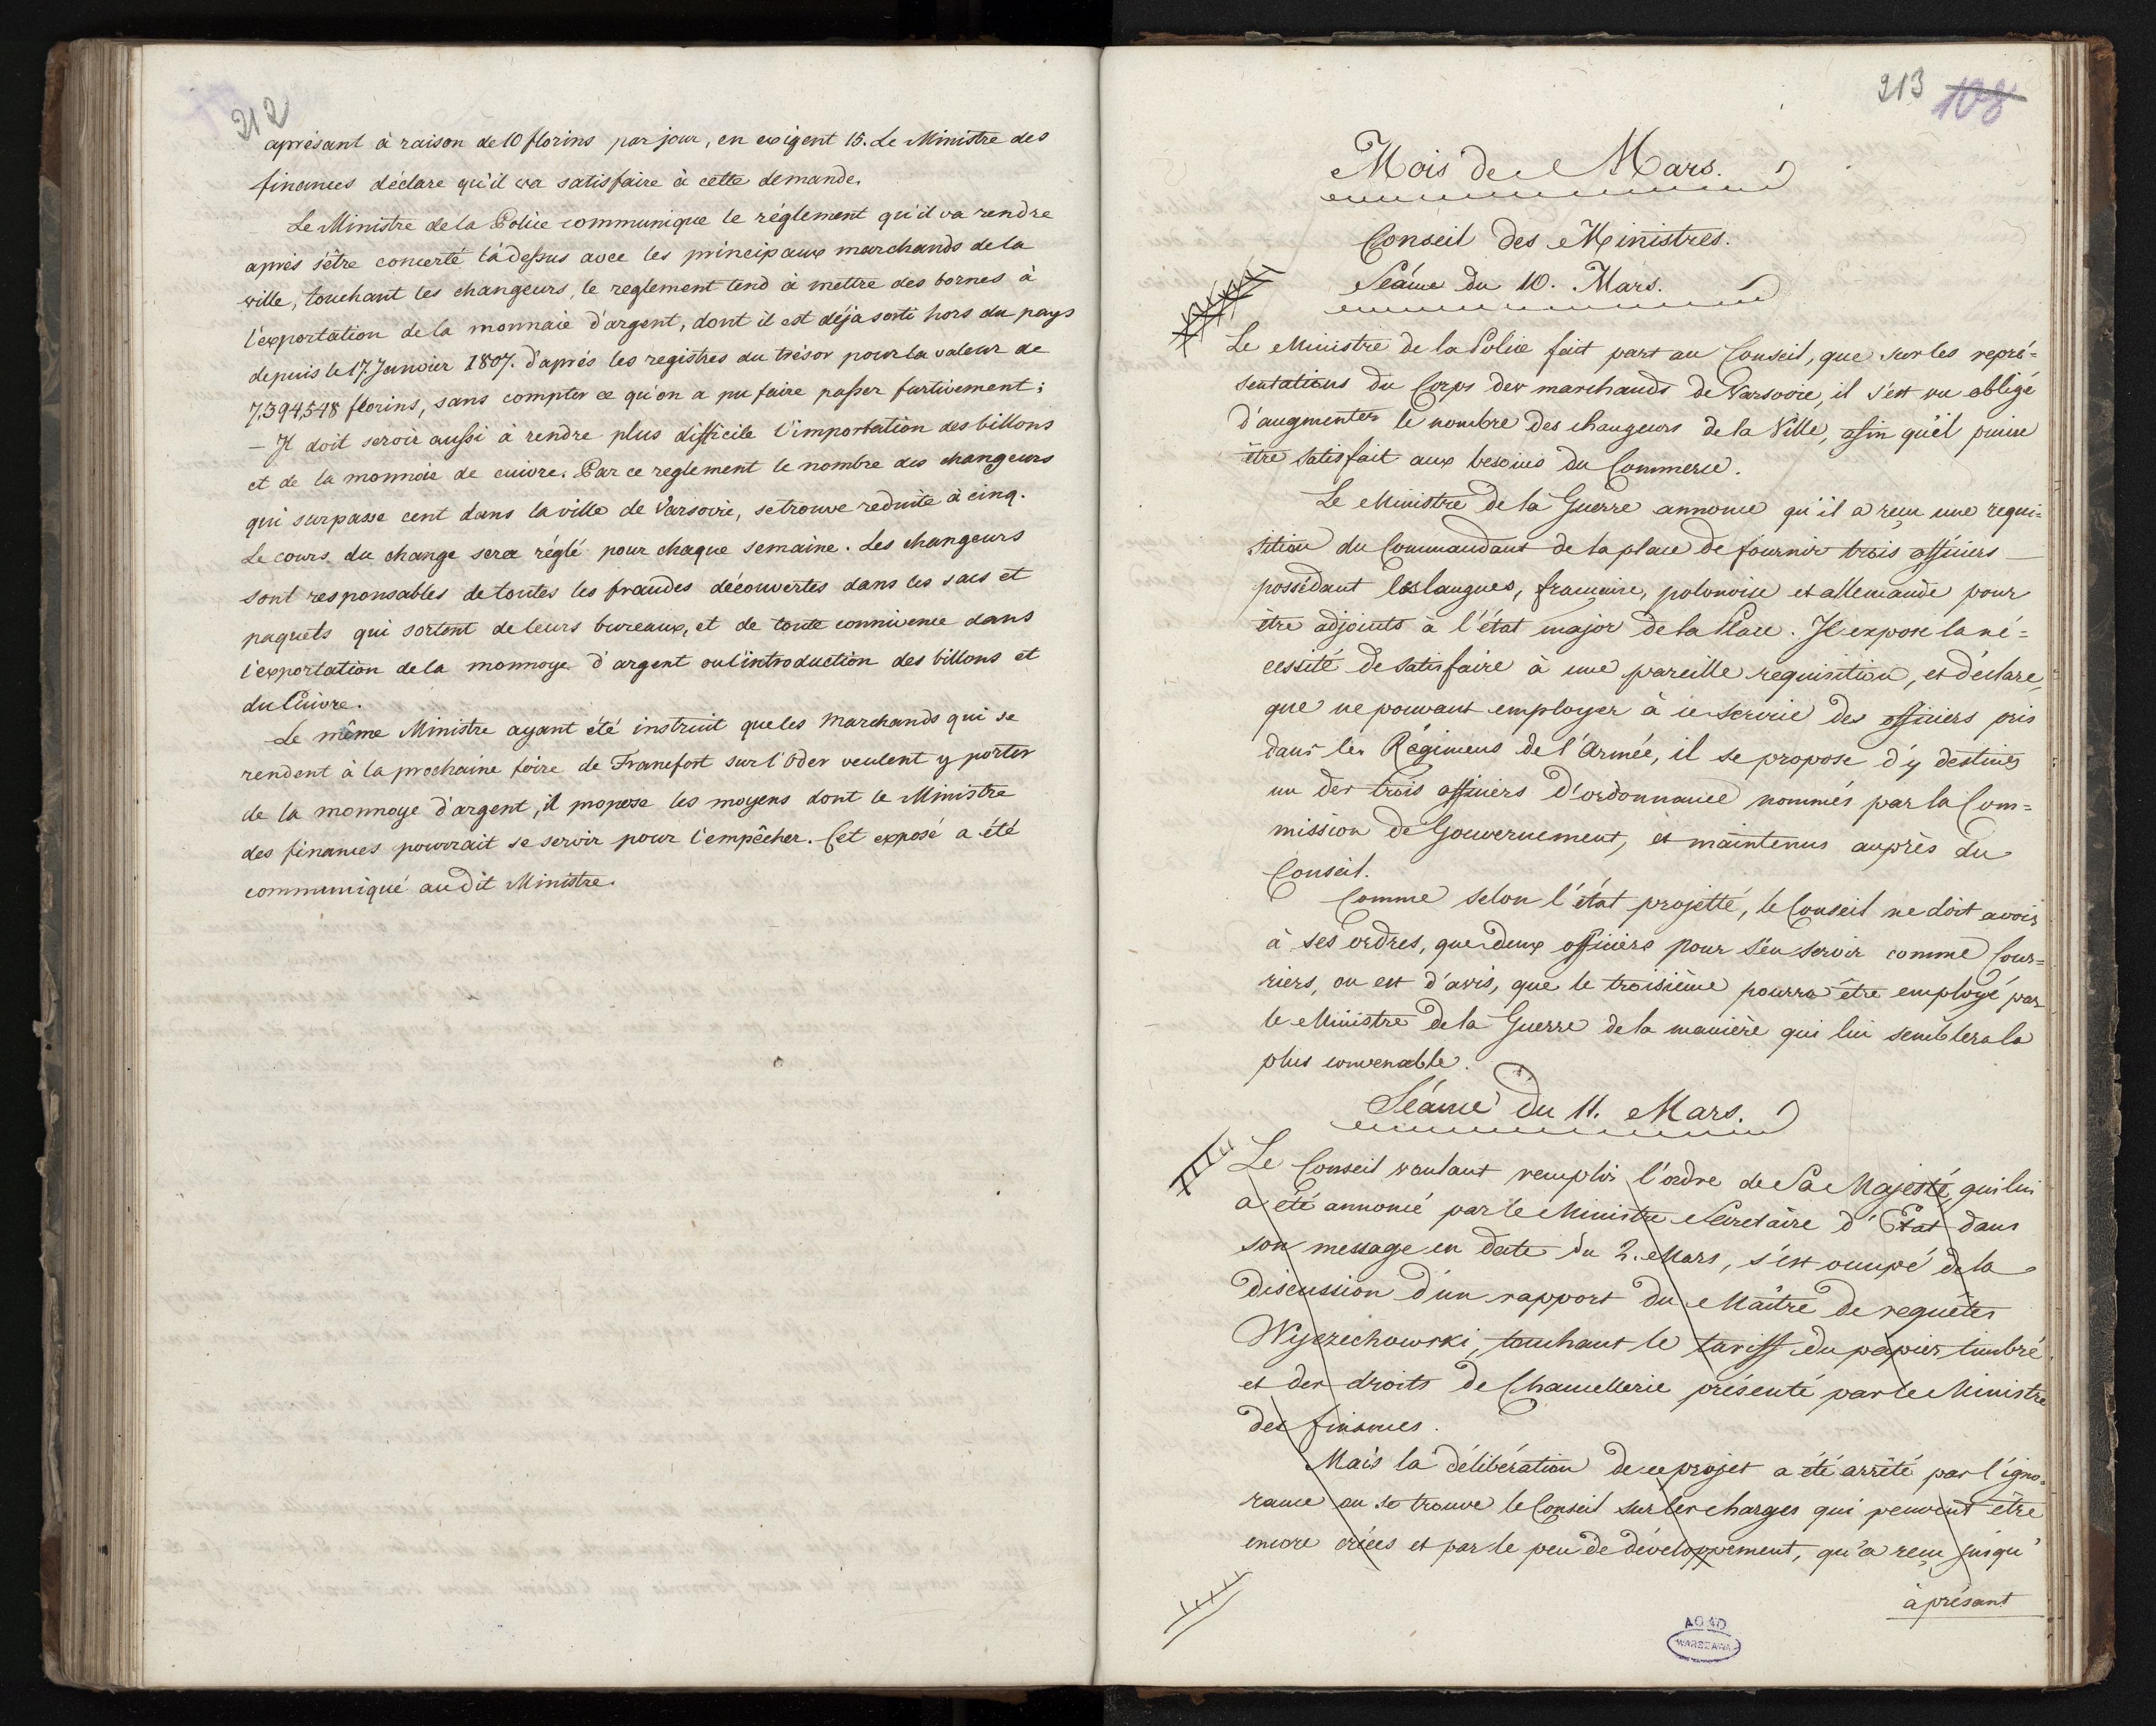 212
aprésant à raison de 10 florins par jour, en exigent 15. Le Ministre des
finances déclare qu'il va satisfaire à cette demande.
Le Ministre de la Police communique le réglement qu'il va rendre
aprés s'être concerté là dessus avec les principaux marchands de la
ville, touchant les changeurs, le reglement tend à mettre des bornes à
l'exportation de la monnaie d'argent, dont il est déja sorti hors du pays
depuis le 17. Janvier 1807. d'aprés les registres du trésor pour la valeur de
7,394,548 florins, sans compter ce qu'on a pu faire passer furtivement;
— Il doit servir aussi à rendre plus difficile l'importation des billons
et de la monnoie de cuivre. Par ce reglement le nombre des changeurs
qui surpasse cent dans la ville de Varsovie, se trouve reduite à cinq.
Le cours du change sera réglé pour chaque semaine. Les changeurs
sont responsables de toutes les fraudes découvertes dans les sacs et
paquets qui sortent de leurs bureaux, et de toute connivence dans
l'exportation de la monnoye d'argent ou l'introduction des billons et
du Cuivre.
Le même Ministre ayant été instruit que les Marchands qui se
rendent à la prochaine foire de Francfort sur l'Oder veulent y porter
de la monnoye d'argent, il propose les moyens dont le Ministre
des finances pourrait se servir pour l'empêcher. Cet exposé a été
communiqué au dit Ministre.
213 108
Mois de Mars.
Conseil des Ministres.
Séance du 10. Mars.
Le Ministre de la Police fait part au Conseil, que sur les repré=
sentations du Corps des marchands de Varsovie, il s'est vu obligé
d'augmenter le nombre des changeurs de la Ville, afin qu'il puisse
être satisfait aux besoins du Commerce.
Le Ministre de la Guerre annonce qu'il a reçu une requi=
sition du Commandant de la place de fournir trois officiers
possédant les langues, francaise, polonoise et allemande pour
être adjoints à l'état major de la Place. Il expose la né=
cessité de satisfaire à une pareille requisition, et déclare,
que ne pouvant employer à ce service des officiers pris
dans les Régimens de l'Armée, il se propose d'y destiner
un des trois officiers d'ordonnance nommés par la Com=
mission de Gouvernement, et maintenus auprès du
Conseil.
Comme selon l'état projetté, le Conseil ne doit avoir
à ses ordres, que deux officiers pour s'en servir comme Cour=
riers, on est d'avis, que le troisième pourra être employé par
le Ministre de la Guerre de la manière qui lui semblera la
plus convenable.
Séance du 11. Mars.
Le Conseil voulant remplir l'ordre de Sa Majesté, qui lui
a été annoncé par le Ministre Secretaire d'Etat dans
son message en date du 2. Mars, s'est occupé de la
discussion d'un rapport du Maître de requêtes
Wyczechowski, touchant le tariff du papier timbré
et des droits de Chancellerie présenté par le Ministre
des finances.
Mais la délibération de ce projet a été arrêté par l'igno=
rance ou se trouve le Conseil sur les charges qui peuvent être
encore créées et par le peu de développement, qu'a reçu jusqu'
à présant
AGAD
WARSZAWA